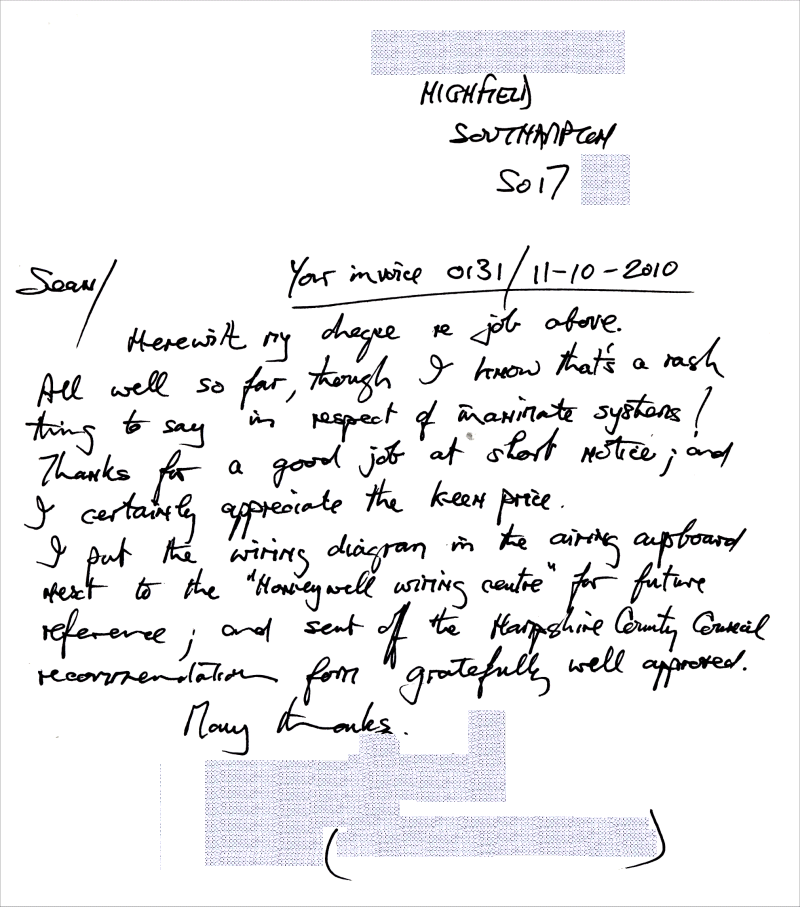 HIGHFIELD
SOUTHAMPTON
SO17
Sean/ Your invoice 0131/11-10-2010
Herewith my cheque re job above.
All well so far, though I know that's a rash
thing to say in respect of inanimate systems!
Thanks for a good job at short notice; and
I certainly appreciate the keen price.
I put the wiring diagram in the airing cupboard
next to the "Honeywell wiring centre" for future
reference; and sent off the Hampshire County Council
recommendation form gratefully well approved.
Many thanks.
( )